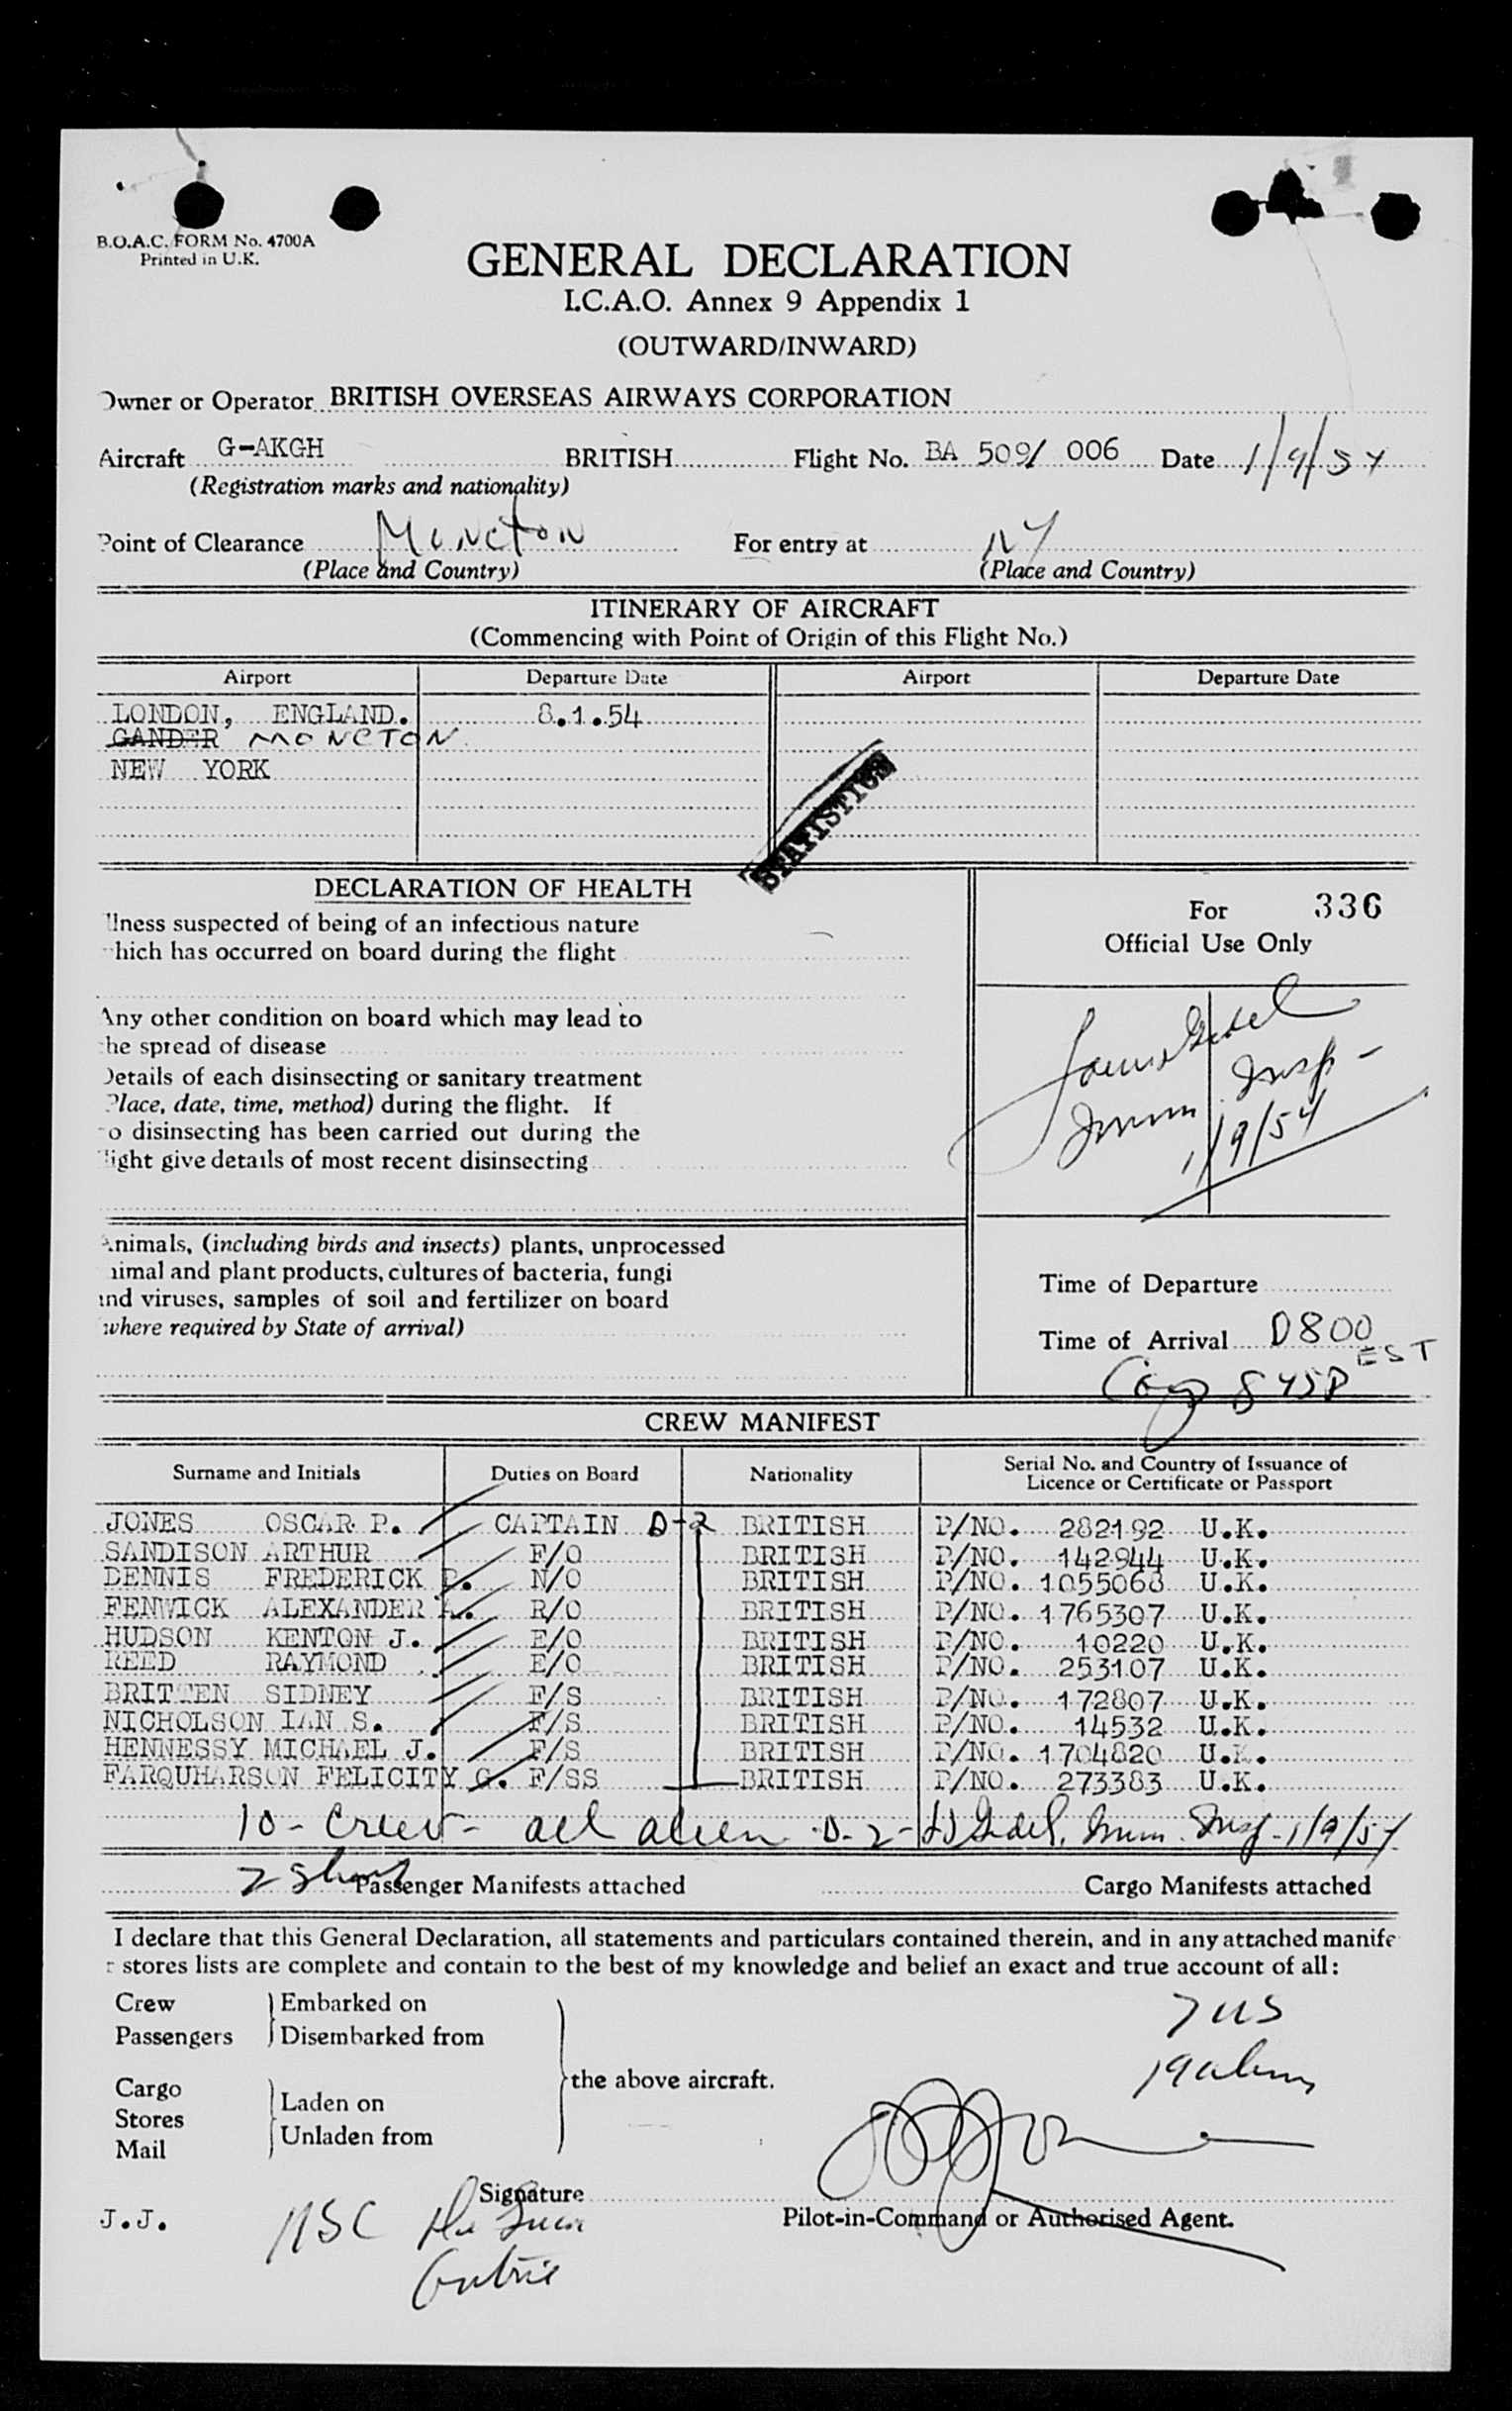 B.O.A.C. FORM No. 4700A
Printed in U.K.
GENERAL DECLARATION
I.C.A.O. Annex 9 Appendix 1
(OUTWARD/INWARD)
Owner or Operator BRITISH OVERSEAS AIRWAYS CORPORATION
Aircraft G-AKGH BRITISH Flight No. BA 509/ 006 Date 1/9/54
(Registration marks and nationality)
Point of Clearance Moncton For entry at NY
(Place and Country) (Place and Country)
ITINERARY OF AIRCRAFT
(Commencing with Point of Origin of this Flight No.)
Airport Departure Date Airport Departure Date
LONDON, ENGLAND. 8.1.54
GANDER MONCTON
NEW YORK
STATISTICS
DECLARATION OF HEALTH
llness suspected of being of an infectious nature
hich has occurred on board during the flight
Any other condition on board which may lead to
he spread of disease
Details of each disinsecting or sanitary treatment
Place, date, time, method) during the flight. If
o disinsecting has been carried out during the
light give details of most recent disinsecting
For 336
Official Use Only
Imm. Insp-
1/9/54
Animals, (including birds and insects) plants, unprocessed
nimal and plant products, cultures of bacteria, fungi
and viruses, samples of soil and fertilizer on board
where required by State of arrival)
Time of Departure
Time of Arrival 0800
EST
845P
CREW MANIFEST
Surname and Initials Duties on Board Nationality Serial No. and Country of Issuance of Licence or Certificate or Passport
JONES OSCAR P. CAPTAIN D-2 BRITISH P/NO. 282192 U.K.
SANDISON ARTHUR F/O BRITISH P/NO. 142944 U.K.
DENNIS FREDERICK N/O BRITISH P/NO. 1055068 U.K.
FENWICK ALEXANDER A. R/O BRITISH P/NO. 1765307 U.K.
HUDSON KENTON J. E/O BRITISH P/NO. 10220 U.K.
REED RAYMOND E/O BRITISH P/NO. 253107 U.K.
BRITTEN SIDNEY F/S BRITISH P/NO. 172807 U.K.
NICHOLSON IAN S. F/S BRITISH P/NO. 14532 U.K.
HENNESSY MICHAEL J. F/S BRITISH P/NO. 1704820 U.K.
FARQUHARSON FELICITY G. F/SS BRITISH P/NO. 273383 U.K.
10 - Crew - all alien D-2 - Imm. Insp - 1/9/54
2 Passenger Manifests attached Cargo Manifests attached
I declare that this General Declaration, all statements and particulars contained therein, and in any attached manife
r stores lists are complete and contain to the best of my knowledge and belief an exact and true account of all:
Crew Embarked on
Passengers Disembarked from
the above aircraft.
Cargo Laden on
Stores
Mail Unladen from
7 US
19 aliens
Signature
Pilot-in-Command or Authorised Agent.
J.J.